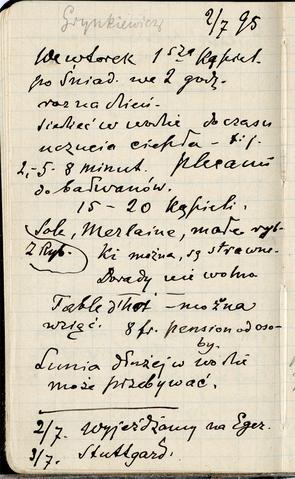 Grynkiewicz
2/7 95
We wtorek 1sza Kąpiel
po śniad. we 2 godz.
raz na dzień
siedzieć w wodzie do czasu
uczucia ciepła – t.j.
2,-5-8 minut. Plecami
do bałwanów.
15 – 20 Kąpieli.
Sole, Merlaine, małe ryb-
2 Ryb. Ki można, są strawne.
Dorady nie wolno
Table d'hot – można
wziąć. 8 fr. pension od oso-
by.
Lunia dłużej w wodzie
może przebywać.
2/7. Wyjeżdżamy na Eger.
3/7. Stuttgard.